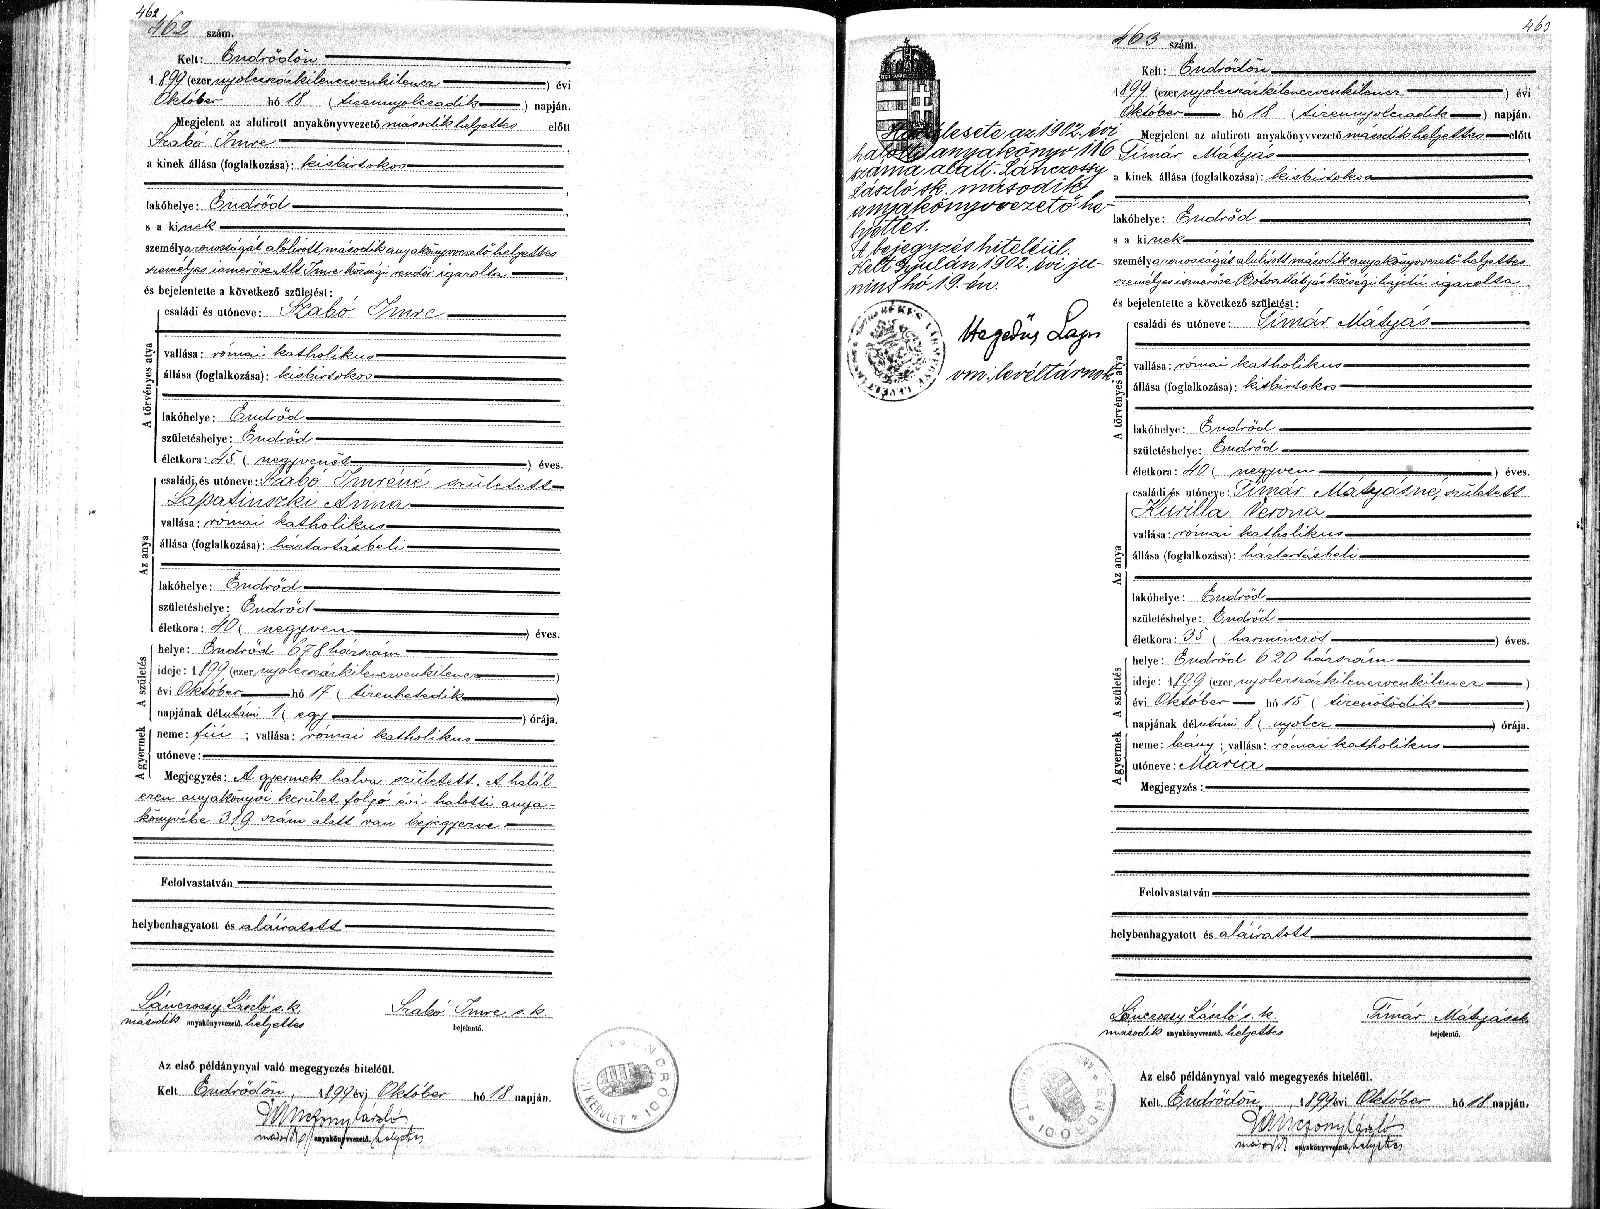 462
462 szám.
Kelt: Endrődön
1899 (ezer nyolczszázkilenczvenkilencz) évi
Október hó 18 (tizennyolczadik) napján.
Megjelent az alulirott anyakönyvvezető második helyettes előtt
Szabó Imre
a kinek állása (foglalkozása): kisbirtokos
lakóhelye: Endrőd
s a kinek
személyazonosságát alólirott második anyakönyvvezető helyettes
személyes ismerőse Alt Imre községi rendőr igazolta
és bejelentette a következő születést:
A törvényes atya
családi és utóneve: Szabó Imre
vallása: római katholikus
állása (foglalkozása): kisbirtokos
lakóhelye: Endrőd
születéshelye: Endrőd
életkora: 45 (negyvenöt) éves.
Az anya
családi és utóneve: Szabó Imréné született
Lapatinszki Anna
vallása: római katholikus
állása (foglalkozása): háztartásbeli
lakóhelye: Endrőd
születéshelye: Endrőd
életkora: 40 (negyven) éves.
A születés
helye: Endrőd 678 házszám
ideje: 1899 (ezer nyolczszázkilenczvenkilencz)
évi Október hó 17 (tizenhetedik)
napjának délutáni 1 (egy) órája.
A gyermek
neme: fiú; vallása: római katholikus
utóneve:
Megjegyzés: A gyermek halva született. A halál
ezen anyakönyvi kerület folyó évi halotti anya-
könyvébe 319 szám alatt van bejegyezve.
Felolvastatván
helybenhagyatott és aláiratott
Lánczossy László s.k.
második anyakönyvvezető. helyettes
Szabó Imre s.k.
bejelentő.
Az első példánynyal való megegyezés hiteléül.
Kelt Endrődön, 1899 évi Október hó 18 napján.
Lánczossy László
másod anyakönyvvezető. helyettes
463
463 szám.
Kelt: Endrődön
1899 (ezer nyolczszázkilenczvenkilencz) évi
Október hó 18 (tizennyolczadik) napján.
Megjelent az alulirott anyakönyvvezető második helyettes előtt
Tímár Mátyás
a kinek állása (foglalkozása): kisbirtokos
lakóhelye: Endrőd
s a kinek
személyazonosságát alulirott második anyakönyvvezető helyettes
személyes ismerőse Mátyás községi hajdú igazolta
és bejelentette a következő születést:
A törvényes atya
családi és utóneve: Tímár Mátyás
vallása: római katholikus
állása (foglalkozása): kisbirtokos
lakóhelye: Endrőd
születéshelye: Endrőd
életkora: 40 (negyven) éves.
Az anya
családi és utóneve: Tímár Mátyásné, született
Kurilla Verona
vallása: római katholikus
állása (foglalkozása): háztartásbeli
lakóhelye: Endrőd
születéshelye: Endrőd
életkora: 35 (harminczöt) éves.
A születés
helye: Endrőd 620 házszám
ideje: 1899 (ezer nyolczszázkilenczvenkilencz)
évi Október hó 15 (tizenötödik)
napjának délutáni 8 (nyolcz) órája.
A gyermek
neme: leány; vallása: római katholikus
utóneve: Mária
Megjegyzés:
Felolvastatván
helybenhagyatott és aláiratott
Lánczossy László s.k.
második anyakönyvvezető. helyettes
Tímár Mátyás sk
bejelentő.
Az első példánynyal való megegyezés hiteléül.
Kelt Endrődön, 1899 évi Október hó 18 napján.
Lánczossy László
másod anyakönyvvezető. helyettes
Halálesete az 1902. évi
halotti anyakönyv 116
száma alatt. Lánczossy
László sk. második
anyakönyvvezető he-
lyettes.
A bejegyzés hiteléül.
Kelt Gyulán 1902. évi ju-
nius hó 19-én.
Hegedűs Lajos
vm. levéltárnok